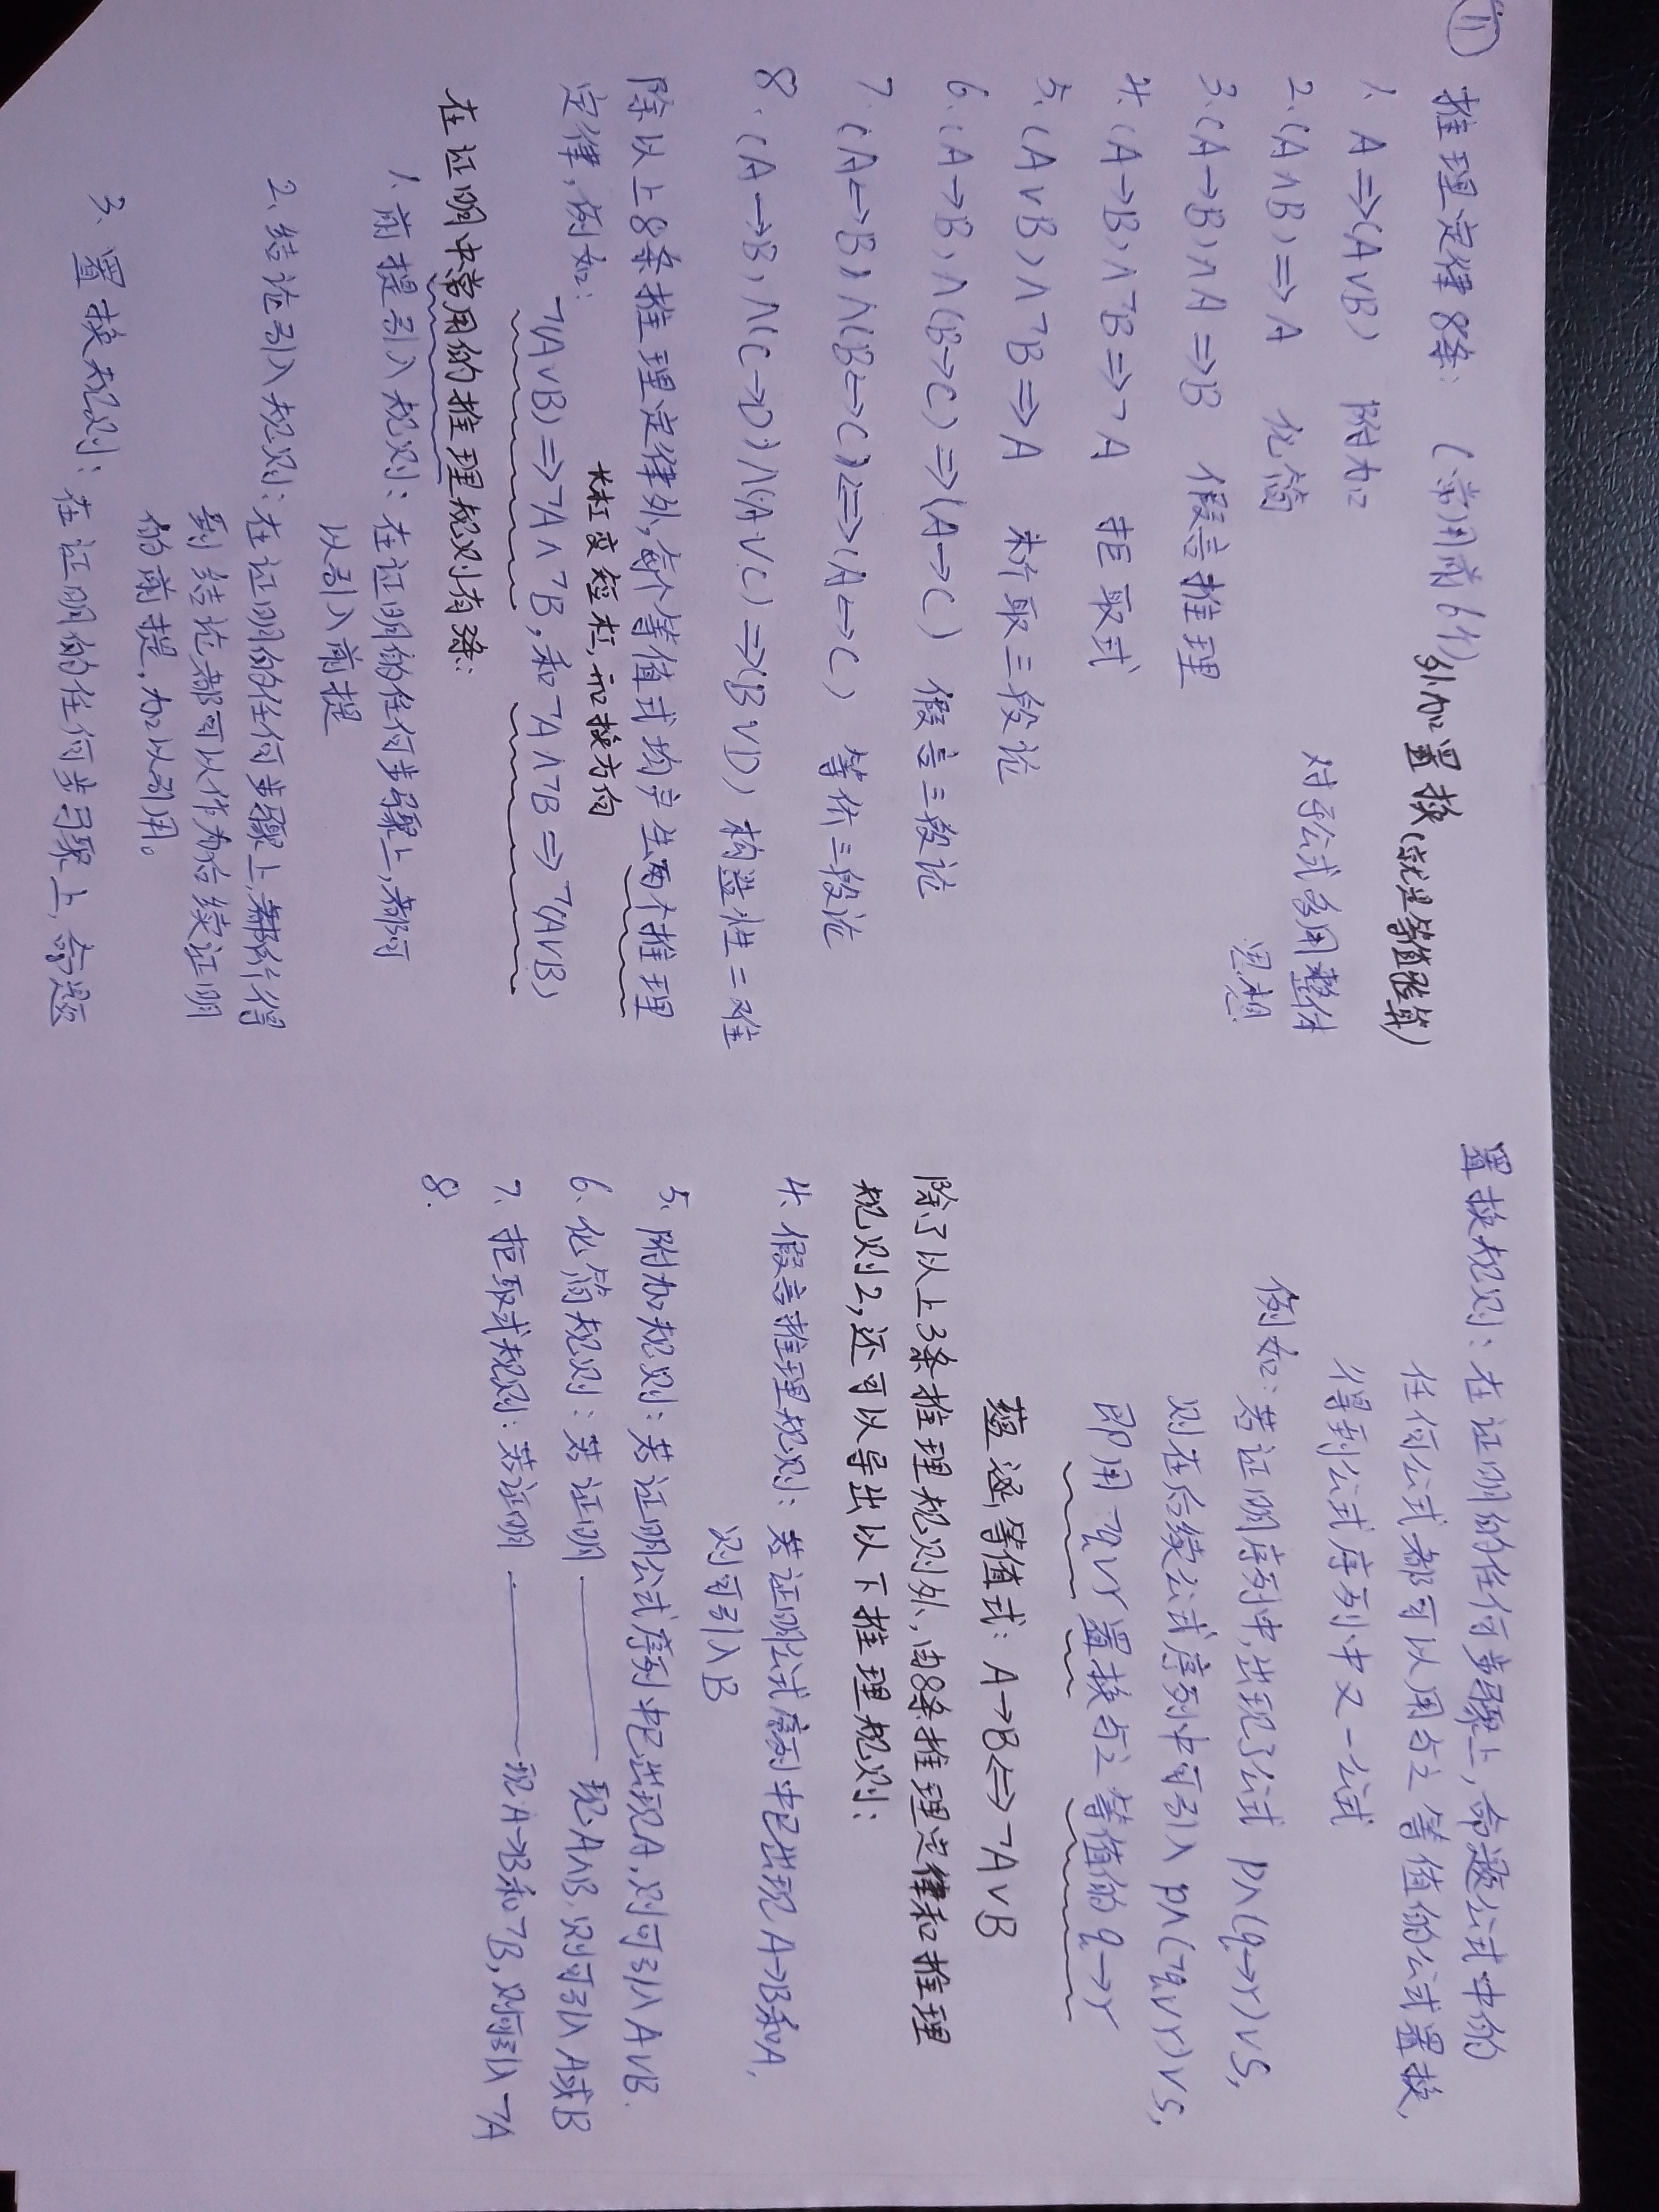 11
推理定律8条: (常用前6个)外加置换(就是等值验算)
1. A⇒(A∨B) 附加
2.(A∧B)⇒A 化简
对于公式多用整体
思想
3.(A→B)∧A⇒B 假言推理
4.(A→B)∧¬B⇒¬A 拒取式
5.(A∨B)∧¬B⇒A 析取三段论
6.(A→B)∧(B→C)⇒(A→C) 假言三段论
7.(A↔B)∧(B↔C)⇔(A↔C) 等价三段论
8.(A→B)∧(C→D)∧(A∨C)⇒(B∨D) 构造性二难
除以上8条推理定律外,每个等值式均产生两个推理
定律,例如:
长杠变短杠,再换方向
¬(A∨B)⇒¬A∧¬B,和¬A∧¬B⇒¬(A∨B)
在证明中常用的推理规则有3条:
1.前提引入规则:在证明的任何步骤上,都可
以引入前提
2.结论引入规则:在证明的任何步骤上,所得
到结论都可以作为后续证明
的前提,加以引用。
3.置换规则:在证明的任何步骤上,命题
置换规则:在证明的任何步骤上,命题公式中的
任何公式都可以用与之等值的公式置换,
得到公式序列中又一公式
例如:若证明序列中,出现了公式 p∧(q→r)∨s,
则在后续公式序列中可引入 p∧(¬q∨r)∨s,
即用¬q∨r置换与之等值的q→r
蕴涵等值式: A→B⇔¬A∨B
除了以上3条推理规则外,由8条推理定律和推理
规则2,还可以导出以下推理规则:
4.假言推理规则:若证明公式序列中已出现A→B和A,
则可引入B
5.附加规则:若证明公式序列中已出现A,则可引入A∨B.
6.化简规则:若证明——现A∧B,则可引入A或B
7.拒取式规则:若证明——现A→B和¬B,则可引入¬A
8.